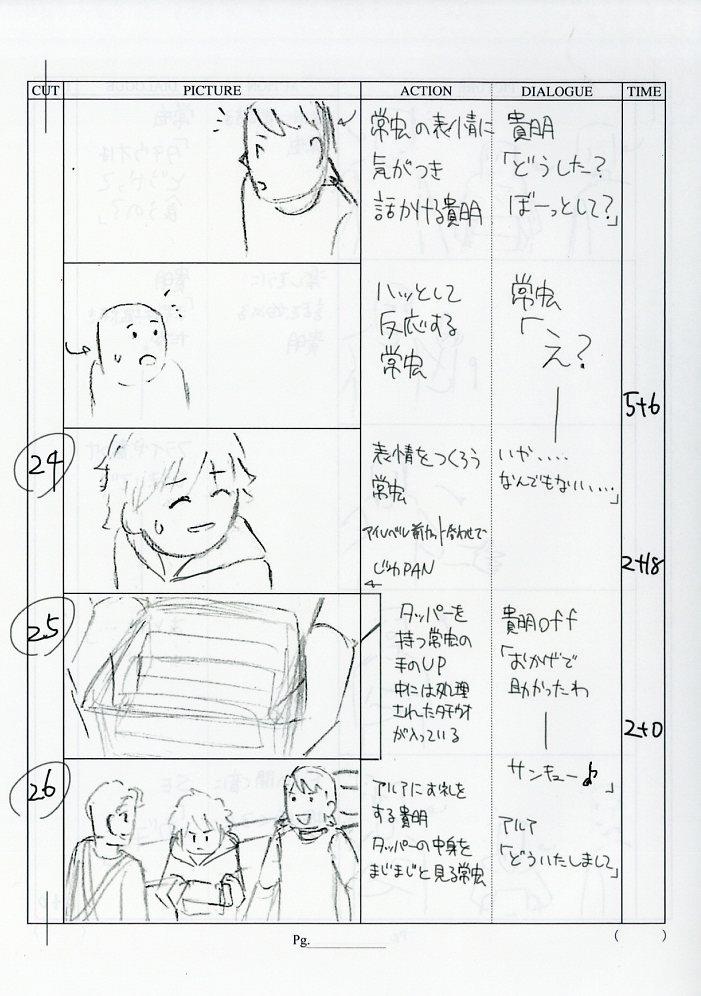 CUT PICTURE ACTION DIALOGUE TIME
常虫の表情に
気がつき
話かける貴明
貴明
「どうした?
ぼーっとして?」
ハッとして
反応する
常虫
常虫
「え?
5+6
24
表情をつくろう
常虫
アイレベル前カット合わせで
じわPAN
いや....
なんでもない....」
2+18
25
タッパーを
持つ常虫の
手のUP
中には処理
されたタチウオ
が入っている
貴明off
「おかげで
助かったわ
2+0
サンキュー♪」
26
アルアにお礼を
する貴明
タッパーの中身を
まじまじと見る常虫
アルア
「どういたしまして」
Pg.
( )